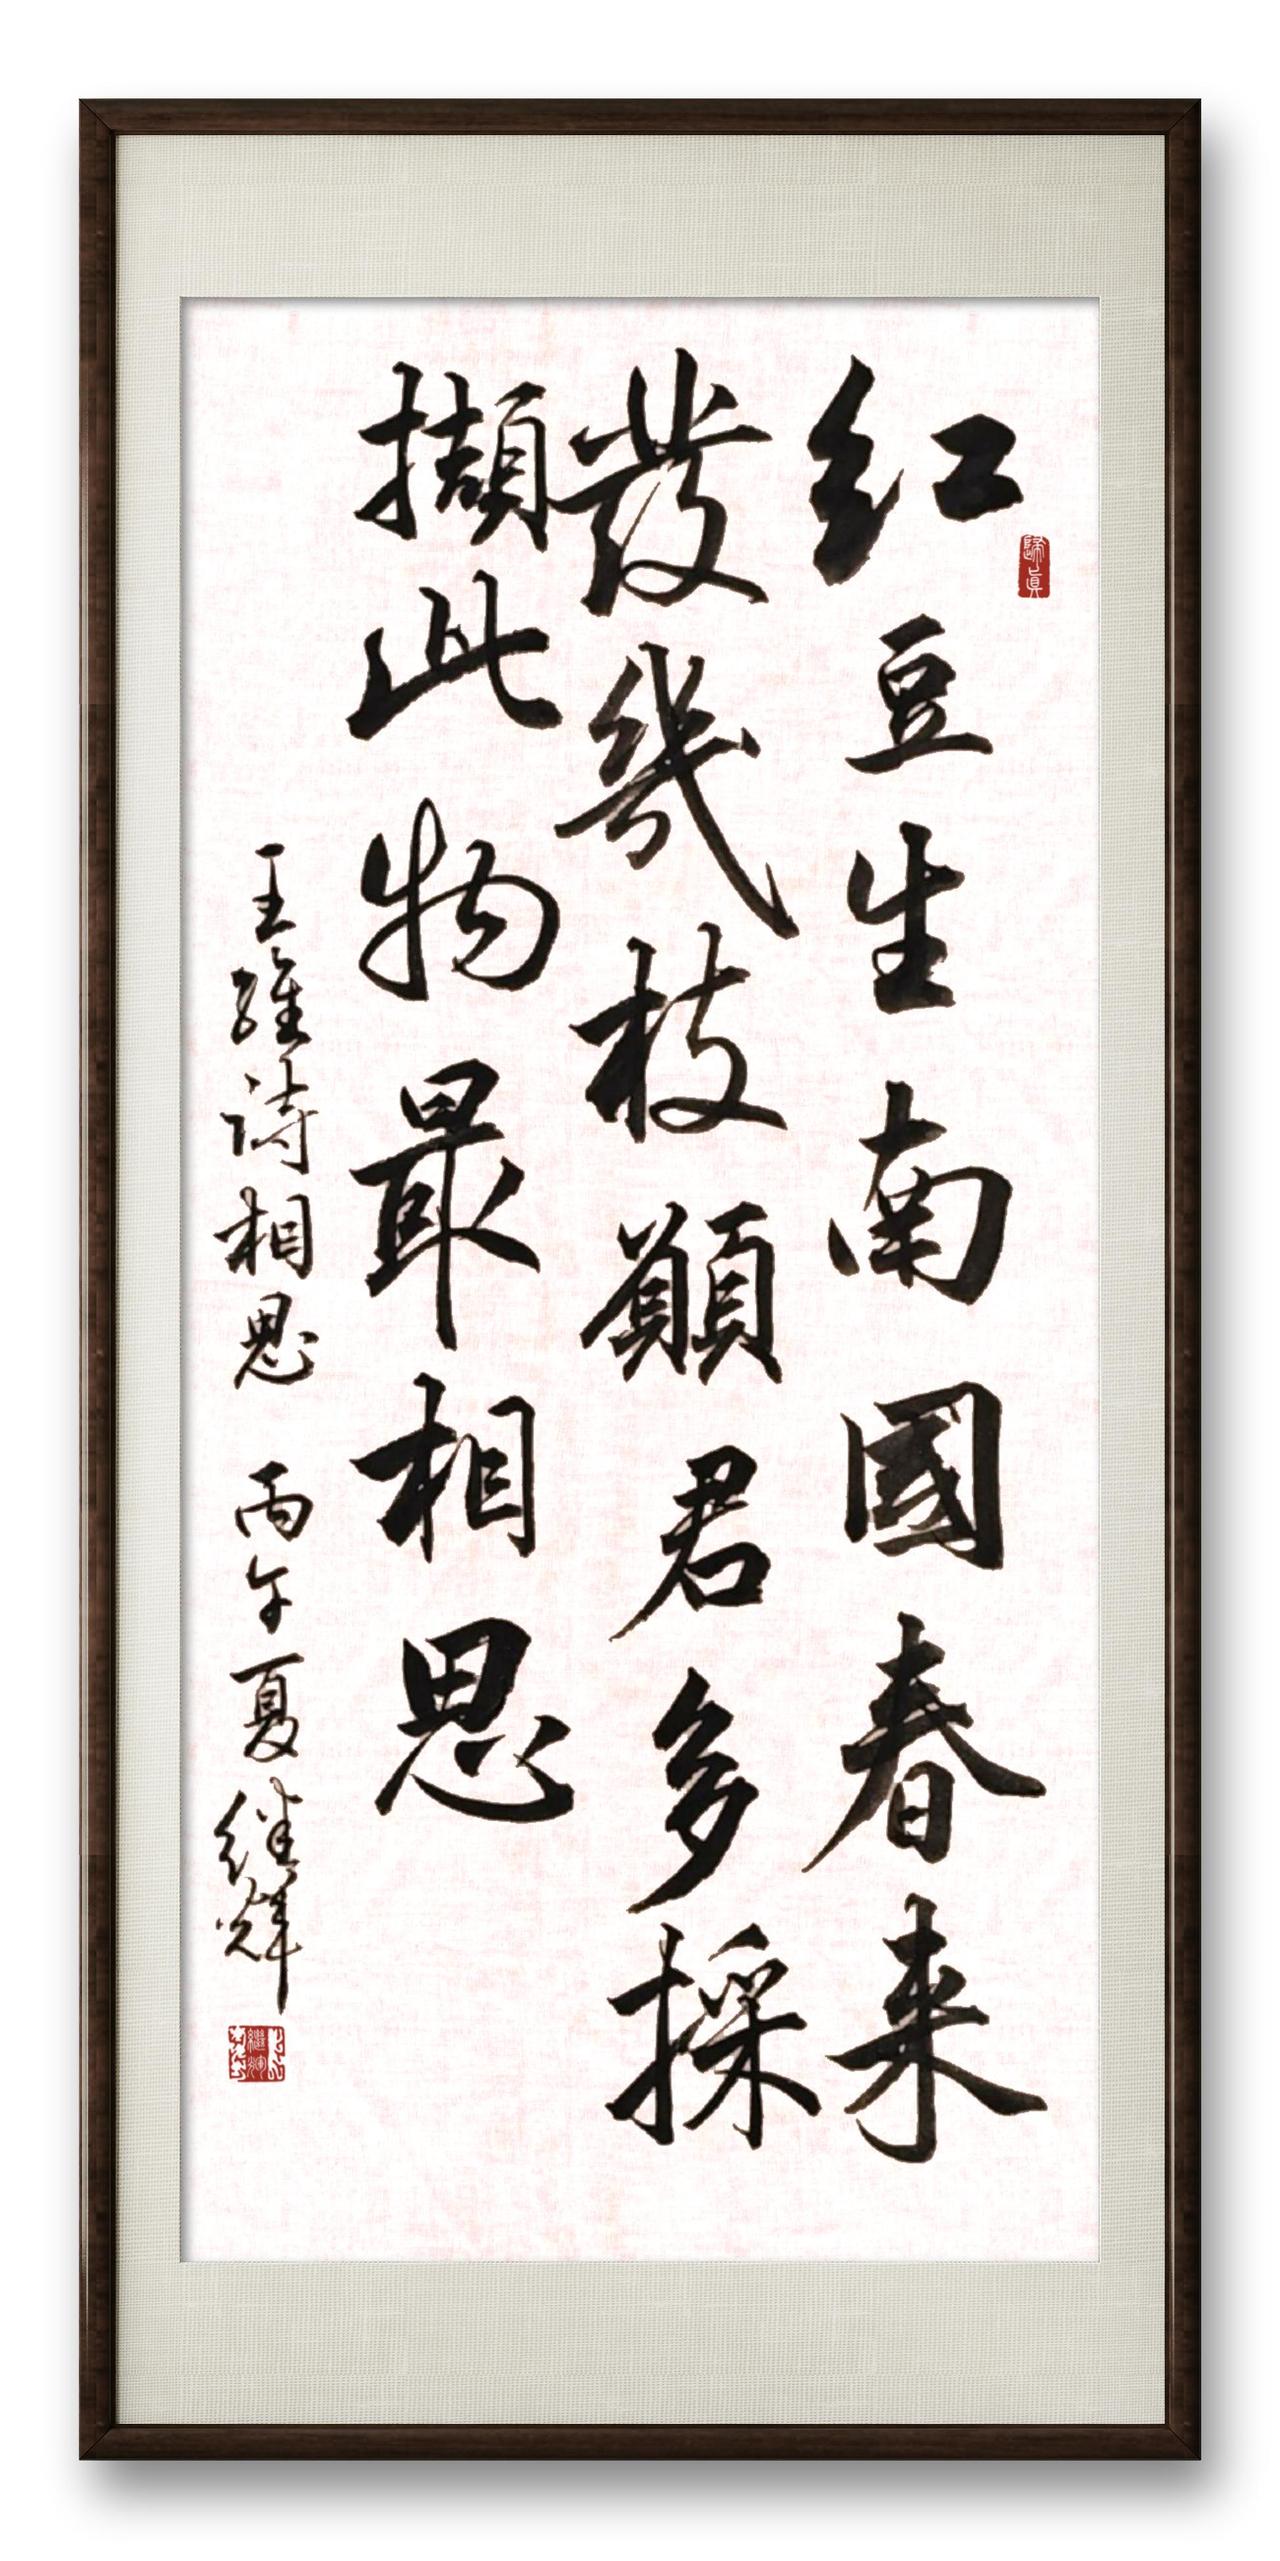 红豆生南國春来
發幾枝願君多採
擷此物最相思
王維詩相思 丙午夏继輝
歸真